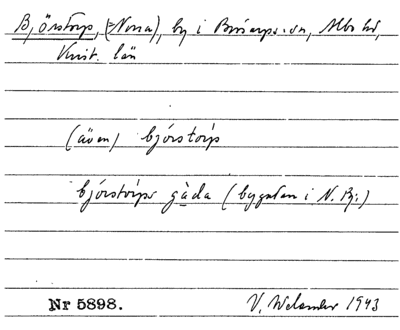 Björstorp, (=Norra), by i Brösarps sn, Albo hd,
Krist. län
(även) bjórstórp
bjórstórps gàda (bygatan i N. Bj.)
Nr 5898. V. Welander 1943